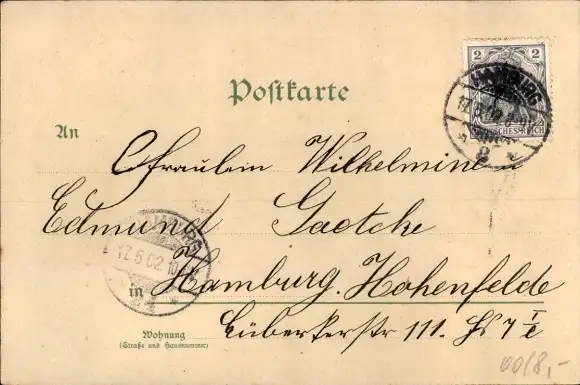 2 2
HAMBURG
17.5.02. 8-9V.
DEUTSCHES REICH
* 2 *
Postkarte
An
Fräulein Wilhelmine
Edmund Gaetcke
HAMBURG
17.5.02. 10
in Hamburg. Hohenfelde
Wohnung
(Straße und Hausnummer)
Lübeckerstr 111. Hs 7 I
00/8,-